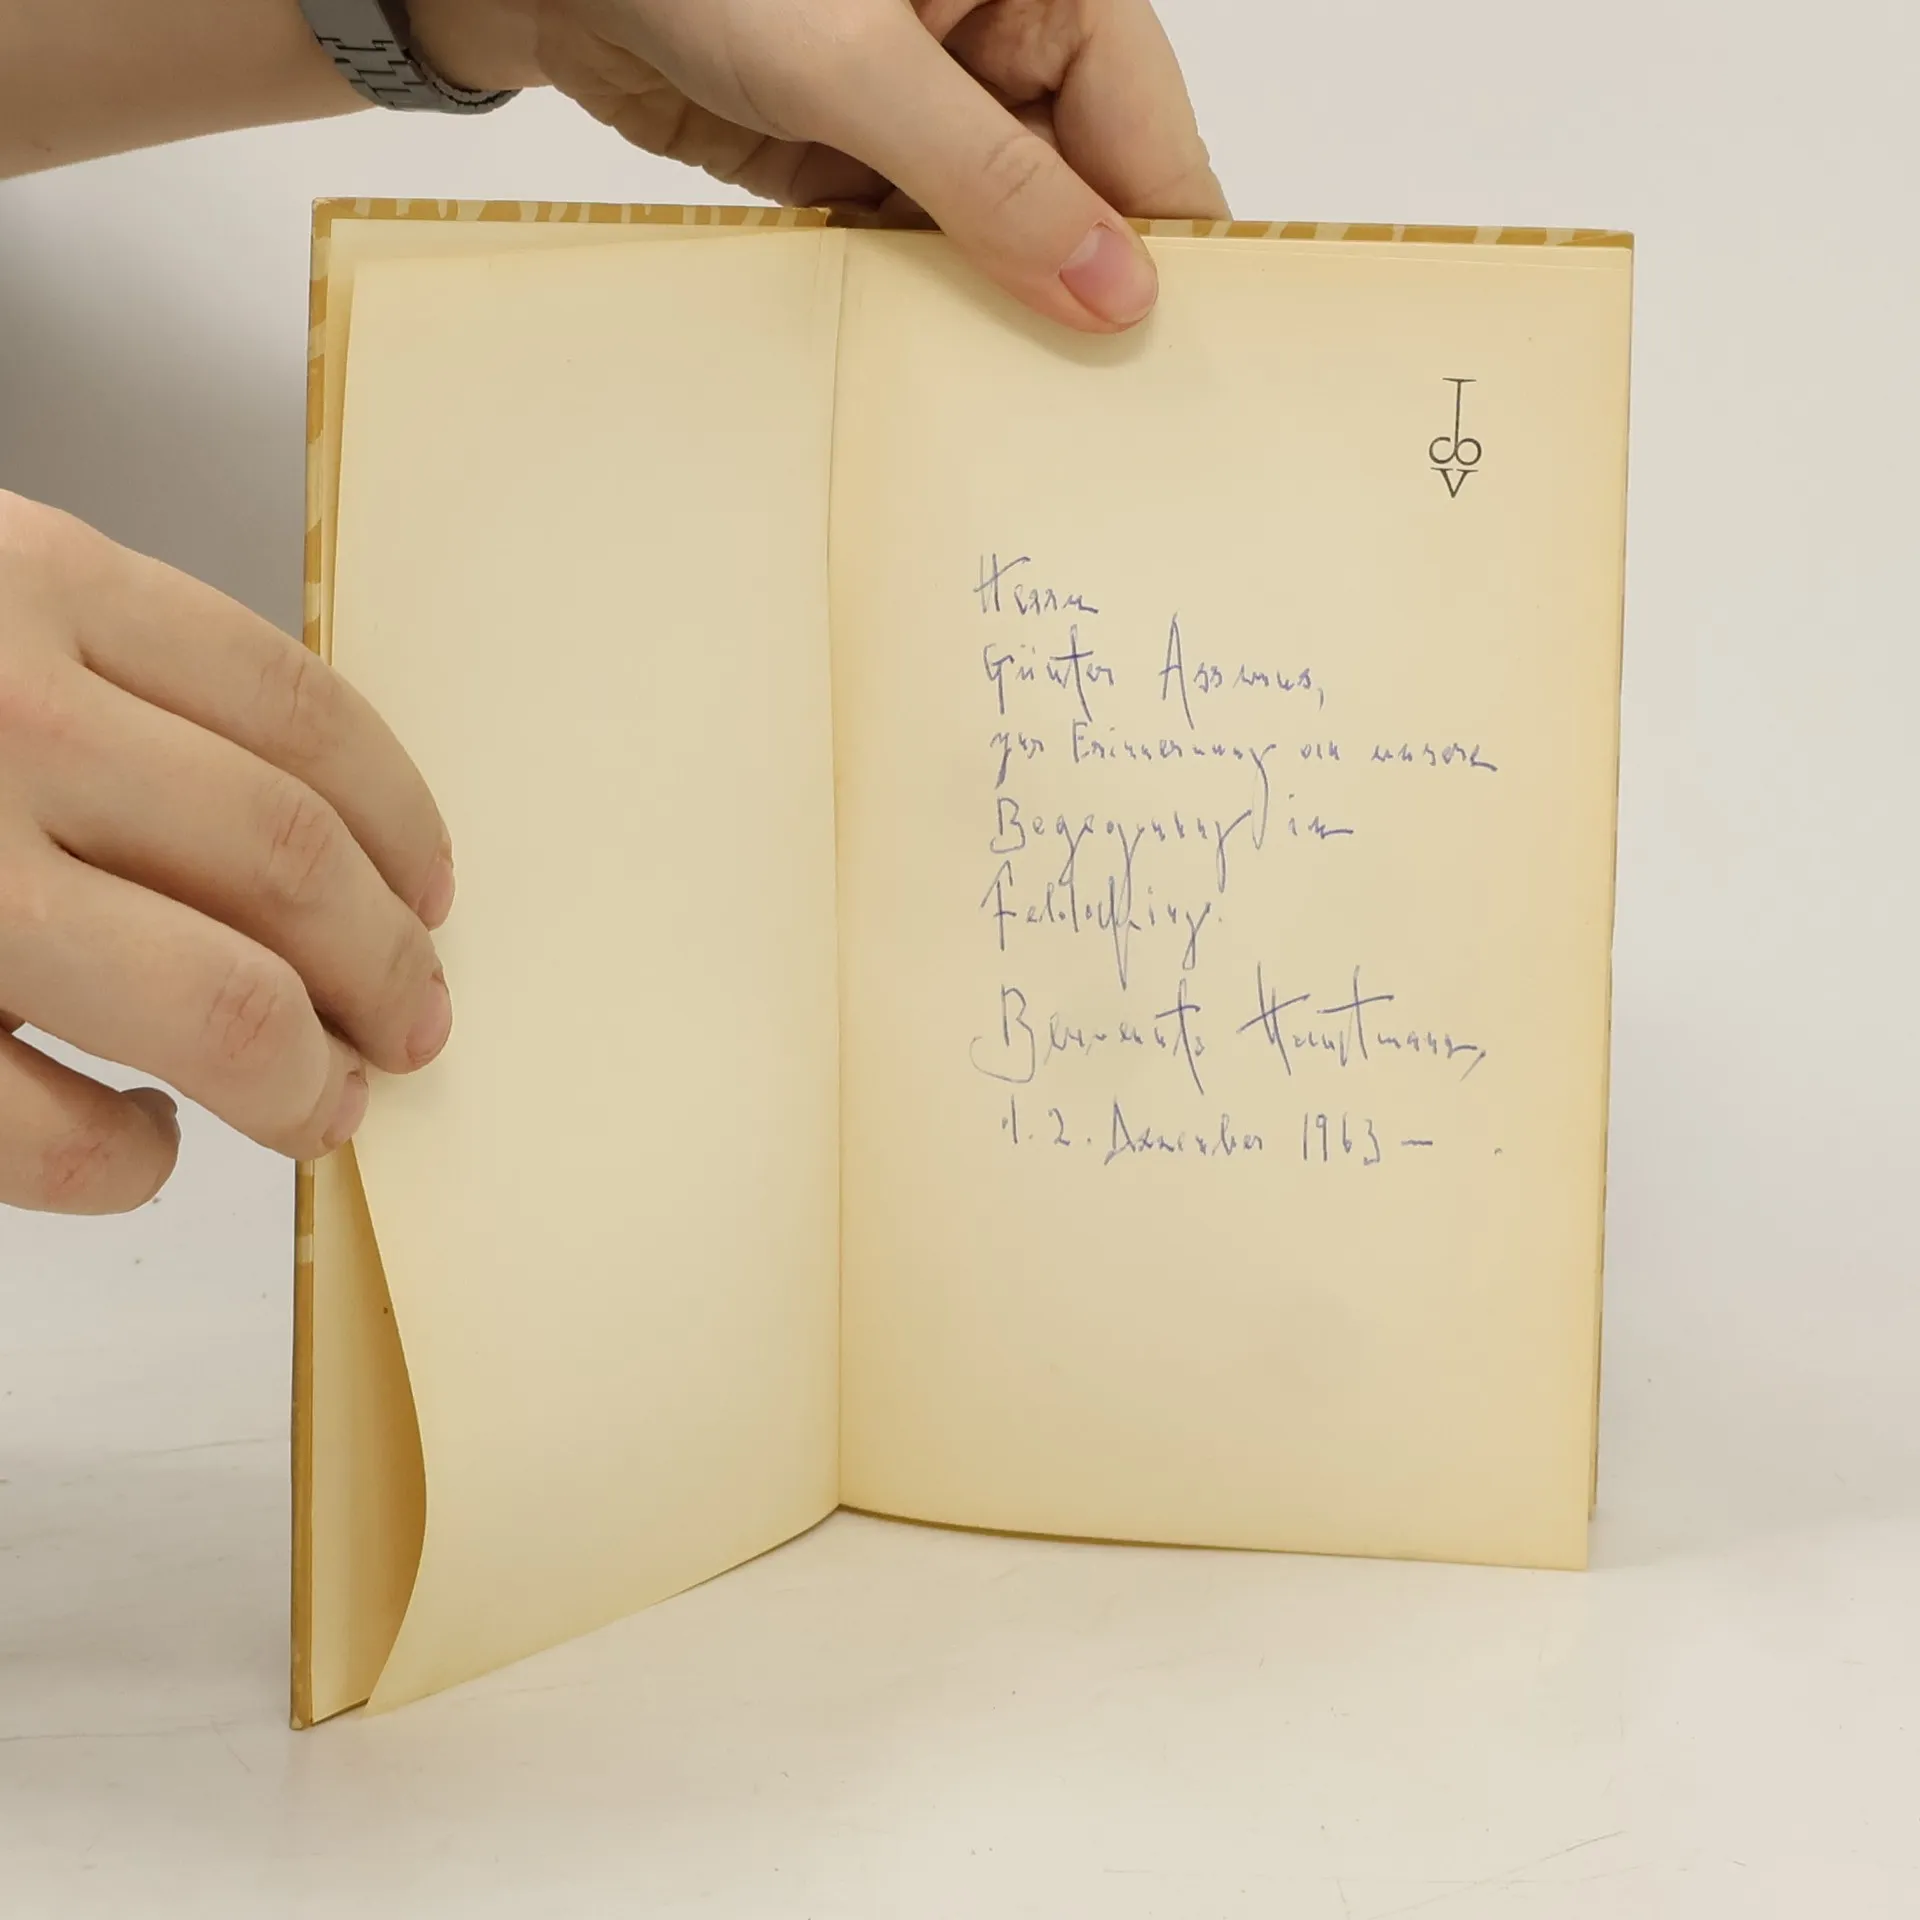 I
cb
V
Herrn
Günter Assmus,
zur Erinnerung an unsere
Begegnung in
Feldafing.
Benvenuto Hauptmann,
12. Dezember 1963 –